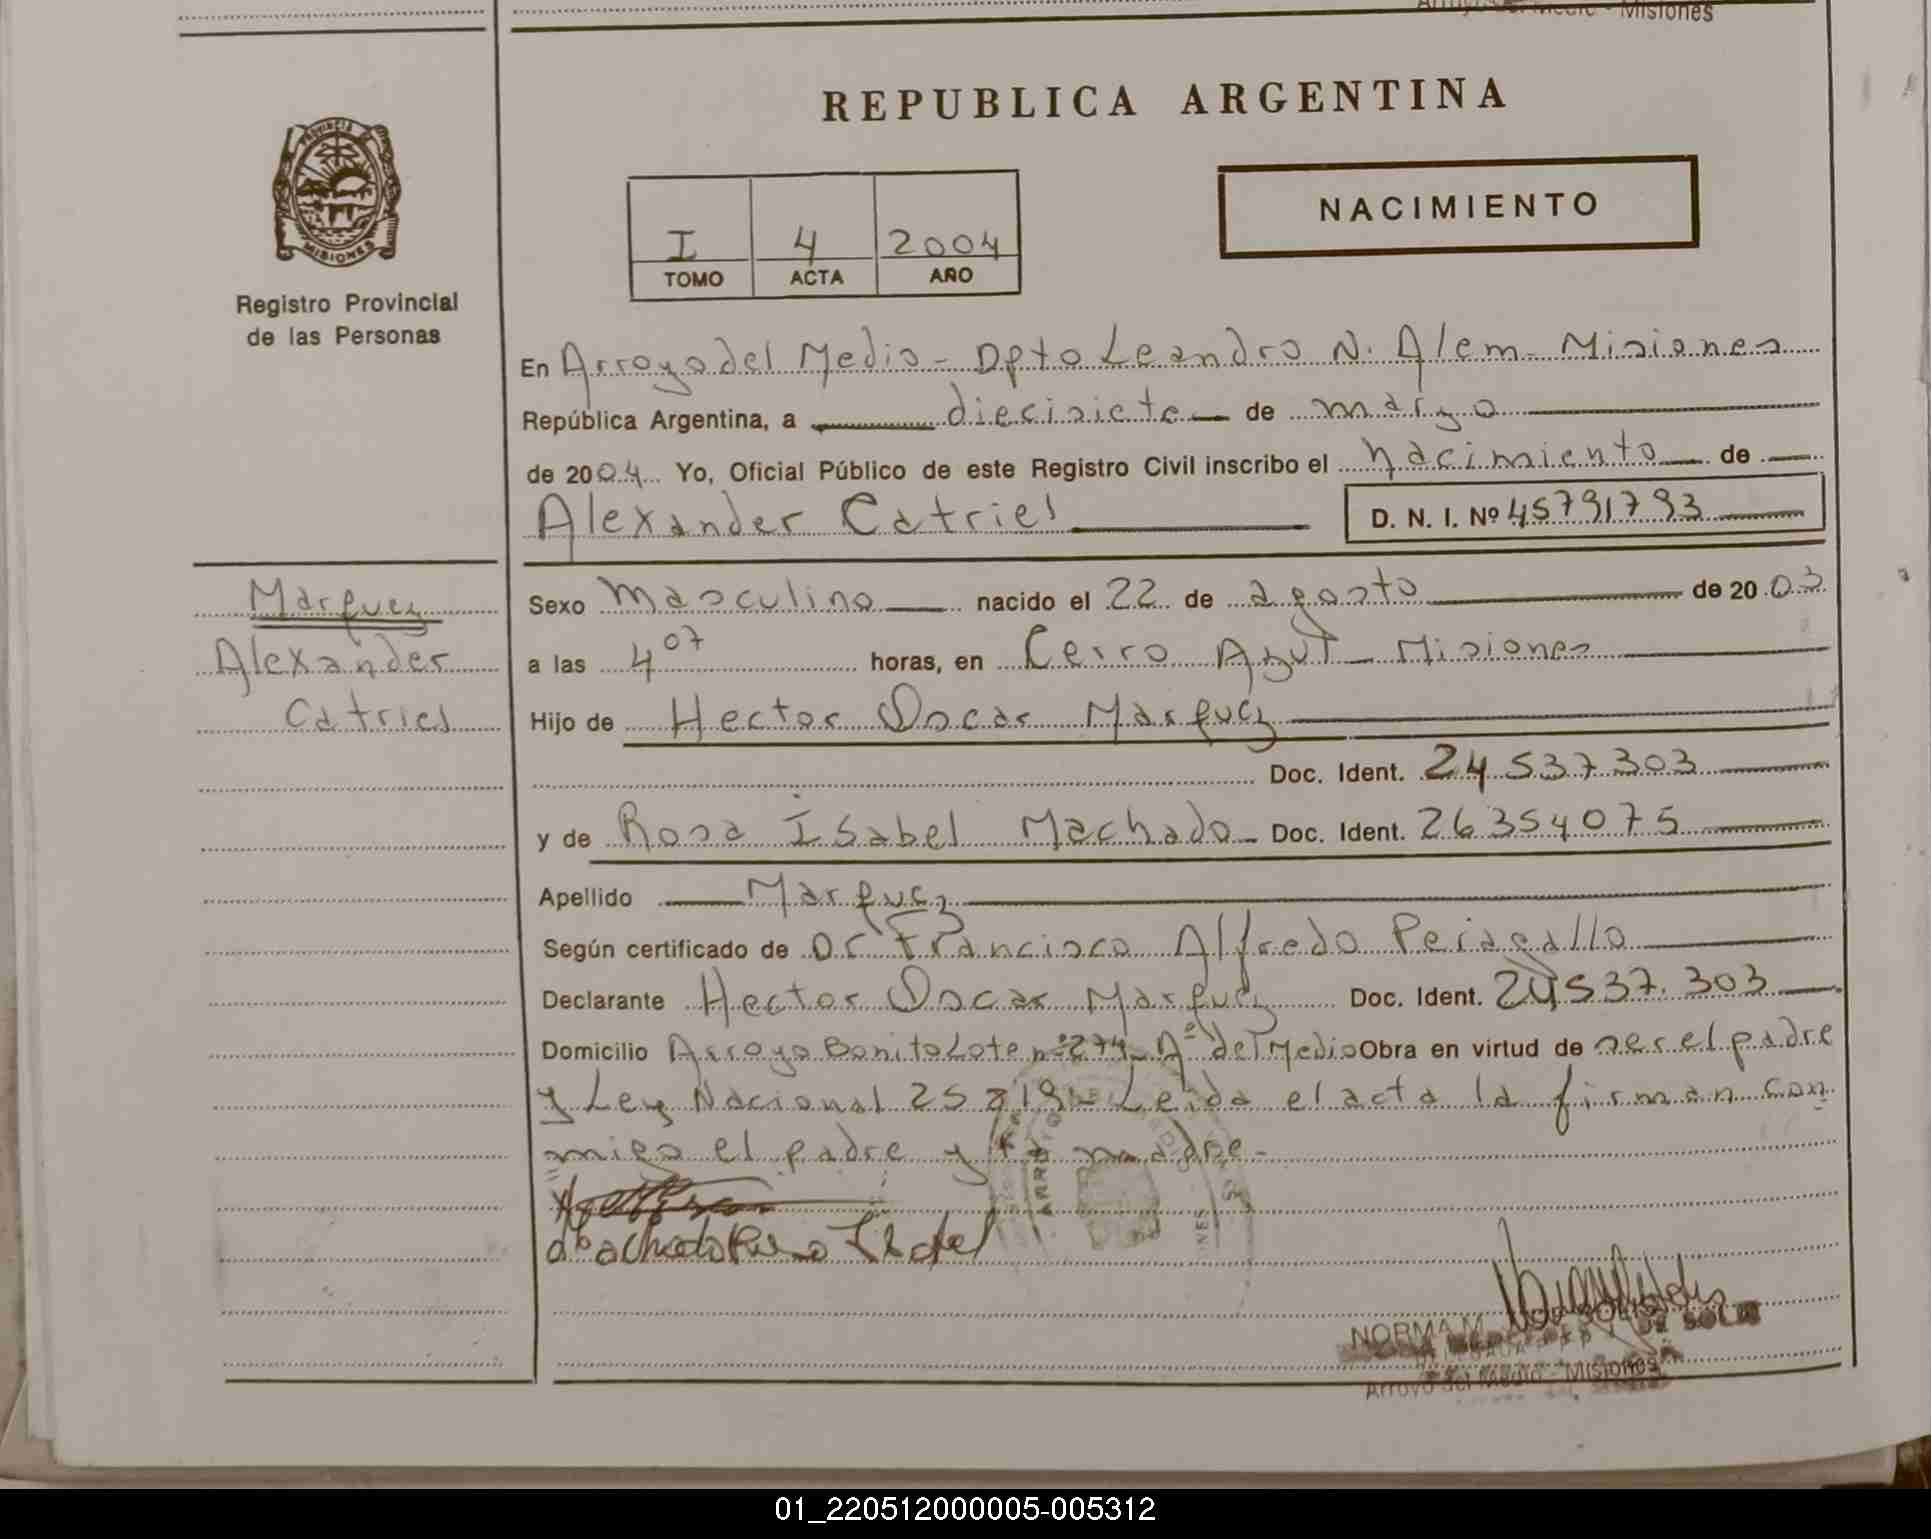 Arroyo del Medio - Misiones
REPUBLICA ARGENTINA
PROVINCIA DE
MISIONES
Registro Provincial
de las Personas
NACIMIENTO
I 4 2004
TOMO ACTA AÑO
En Arroyo del Medio - Dpto Leandro N. Alem - Misiones
República Argentina, a diecisiete de marzo
de 2004. Yo, Oficial Público de este Registro Civil inscribo el nacimiento de
Alexander Catriel D. N. I. Nº 45791793
Marquez
Alexander
Catriel
Sexo masculino nacido el 22 de agosto de 2003
a las 4 07 horas, en Cerro Azul - Misiones
Hijo de Hector Oscar Marquez
Doc. Ident. 24 537 303
y de Rosa Isabel Machado - Doc. Ident. 26354075
Apellido Marquez
Según certificado de Dr Francisco Alfredo Peiragallo
Declarante Hector Oscar Marquez Doc. Ident. 24537.303
Domicilio Arroyo Bonito Lote nº 274 - Aº del Medio Obra en virtud de ser el padre
y Ley Nacional 25819 - Leida el acta la firman con
migo el padre y la madre -
Machado Rosa Isabel
NORMA M. DE SOLIS
Arroyo del Medio - Misiones
01_220512000005-005312